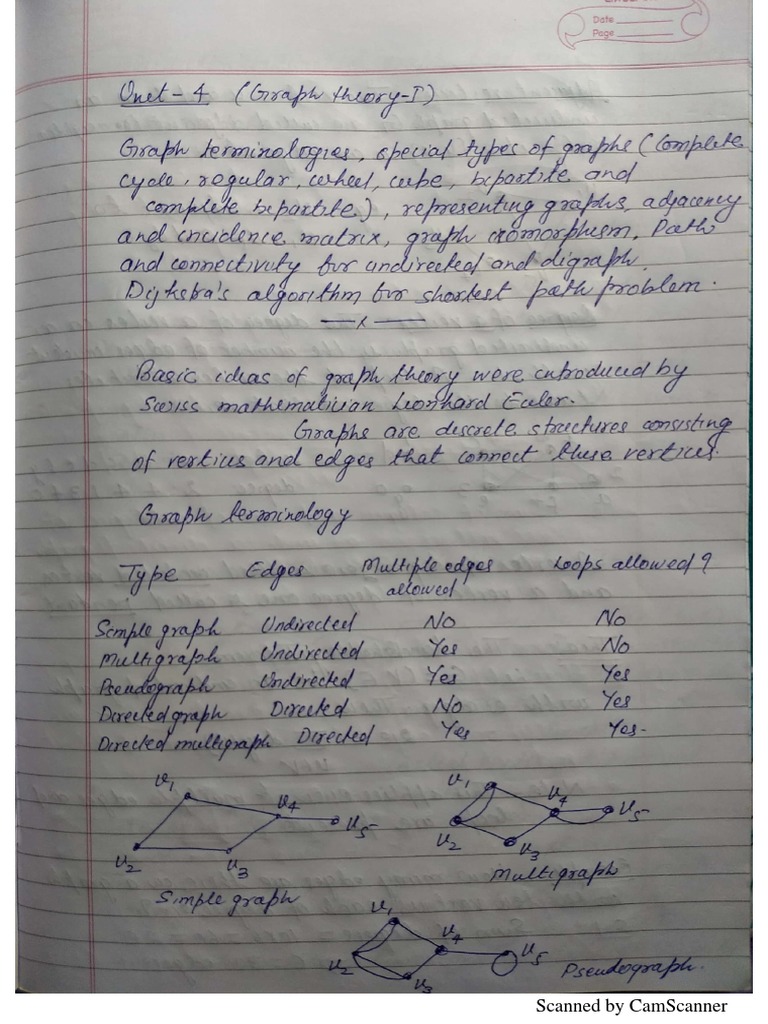 Date
Page
Unit - 4 (Graph theory-I)
Graph terminologies, special types of graphs (complete
cycle, regular, wheel, cube, bipartite and
complete bipartite), representing graphs, adjacency
and incidence matrix, graph isomorphism, Path
and connectivity for undirected and digraph,
Dijkstra's algorithm for shortest path problem.
—x—
Basic ideas of graph theory were introduced by
Swiss mathematician Leonhard Euler.
Graphs are discrete structures consisting
of vertices and edges that connect these vertices.
Graph terminology
Type Edges Multiple edges allowed Loops allowed?
Simple graph Undirected No No
Multigraph Undirected Yes No
Pseudograph Undirected Yes Yes
Directed graph Directed No Yes
Directed multigraph Directed Yes Yes.
v1 v4 v5 v2 v3
Simple graph
v1 v4 v5 v2 v3
Multigraph
v1 v4 v5 v2 v3
Pseudograph.
Scanned by CamScanner